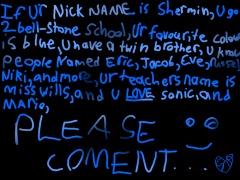 If Ur Nick NAME is Shermin, U go
2 bell-Stone School, Ur favourite colour
is blue, U have a twin brother, U know
People Named Eric, Jacob, Eve,
Niki, and more, Ur teachers name is
miss wills, and U LOVE sonic, and
Mario,
PLEASE
COMENT...